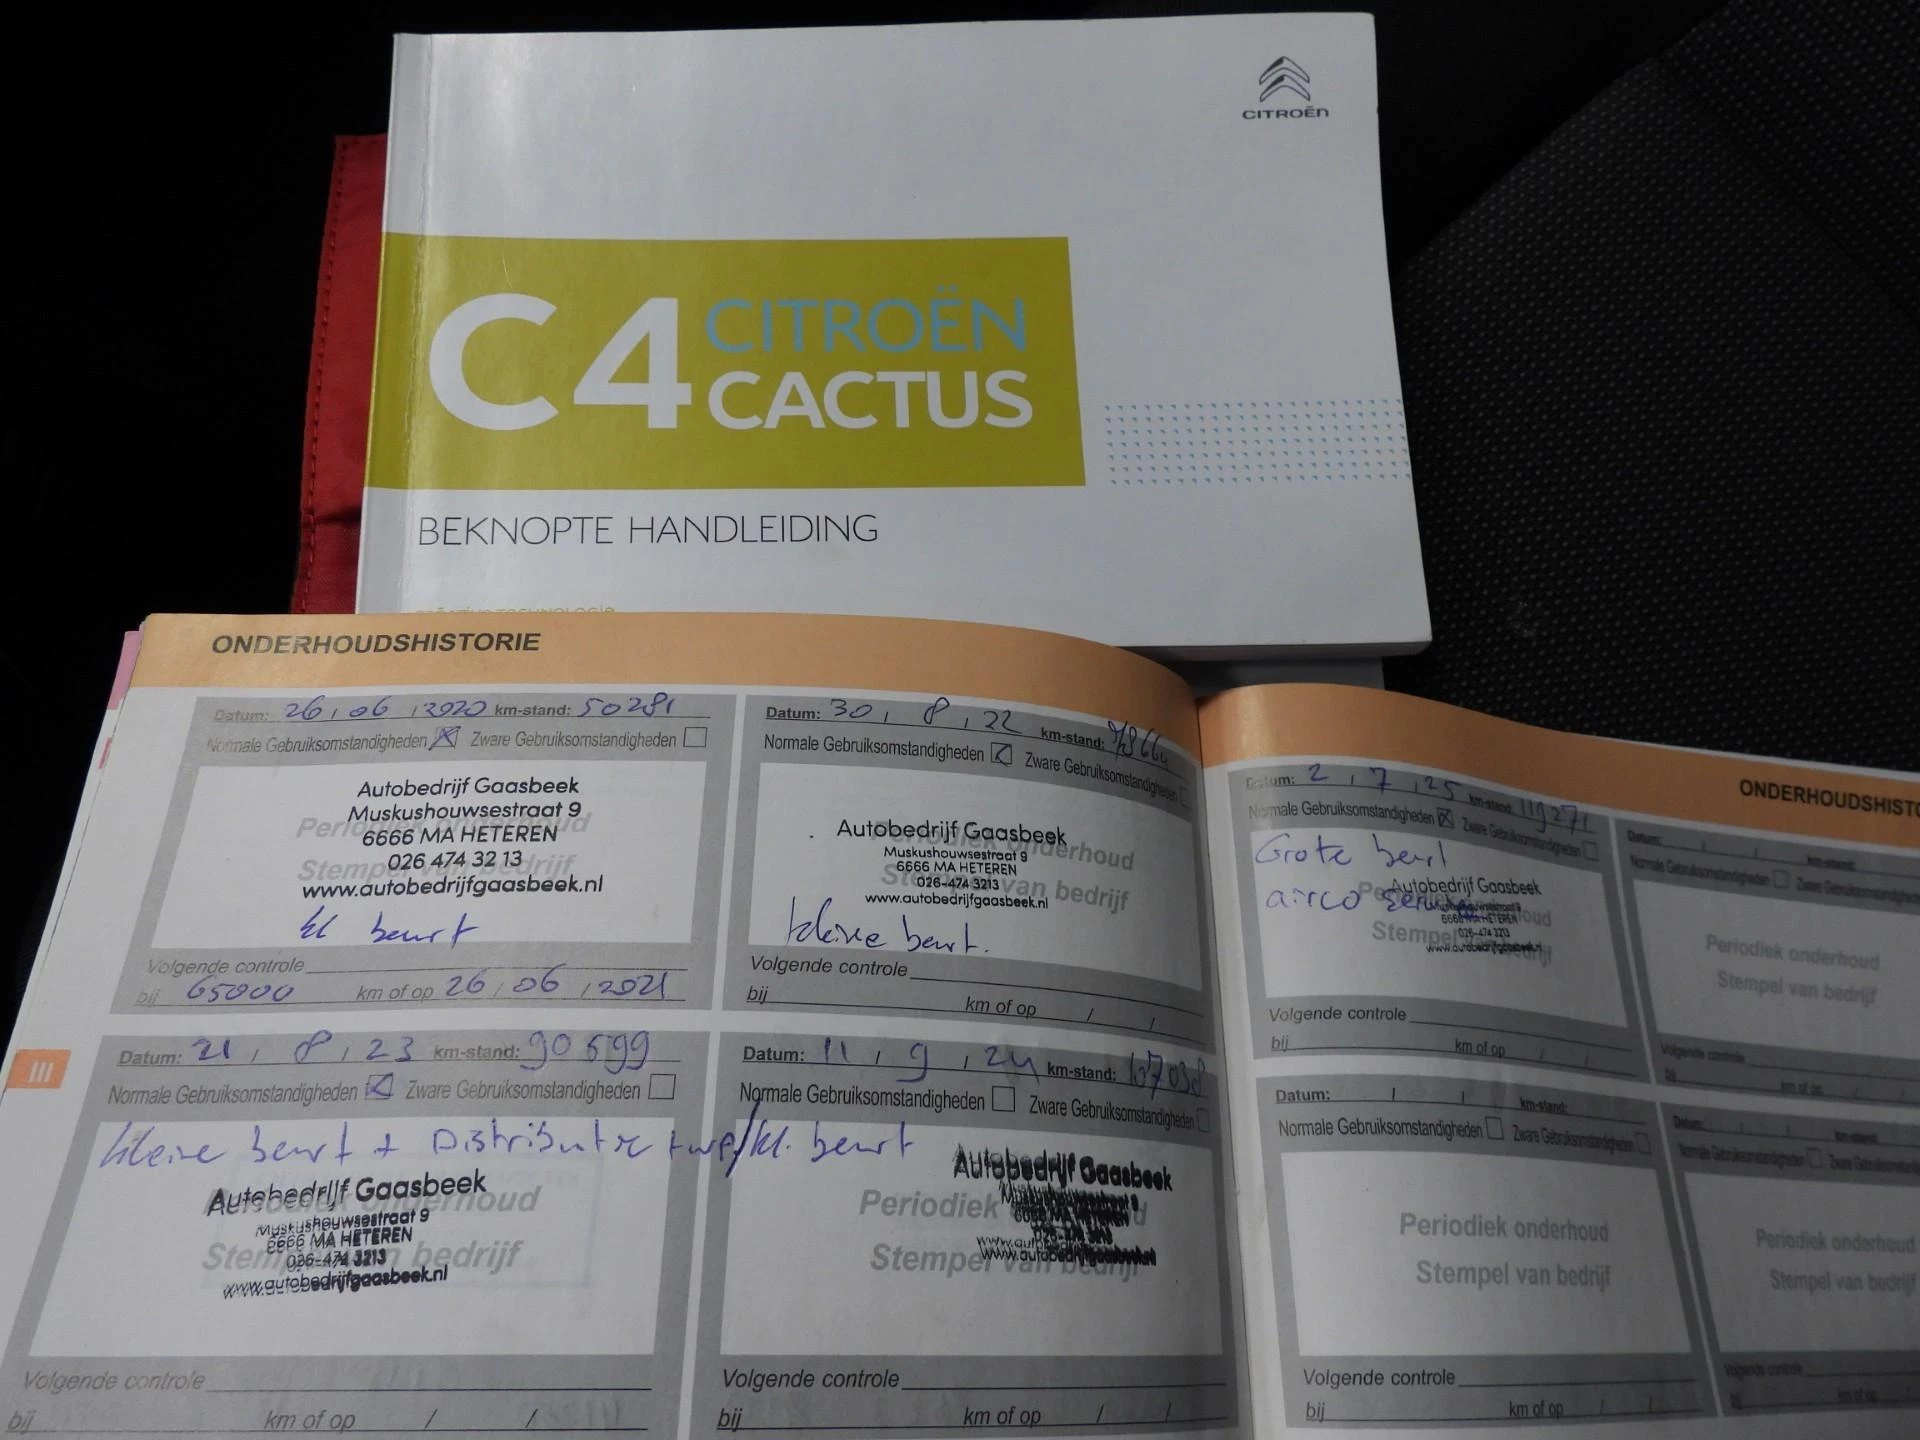 CITROËN
C4 CITROËN
CACTUS
BEKNOPTE HANDLEIDING
ONDERHOUDSHISTORIE
Datum: 26 / 06 / 2020 km-stand: 50281
Normale Gebruiksomstandigheden Zware Gebruiksomstandigheden
Periodiek onderhoud
Stempel van bedrijf
Autobedrijf Gaasbeek
Muskushouwsestraat 9
6666 MA HETEREN
026 474 32 13
www.autobedrijfgaasbeek.nl
kl beurt
Volgende controle
bij 65000 km of op 26 / 06 / 2021
Datum: 30 / 8 / 22 km-stand:
Normale Gebruiksomstandigheden Zware Gebruiksomstandigheden
Periodiek onderhoud
Stempel van bedrijf
Autobedrijf Gaasbeek
Muskushouwsestraat 9
6666 MA HETEREN
026-474 3213
www.autobedrijfgaasbeek.nl
kleine beurt.
Volgende controle
bij km of op / /
III
Datum: 21 / 8 / 23 km-stand: 90599
Normale Gebruiksomstandigheden Zware Gebruiksomstandigheden
kleine beurt + Distributie
Periodiek onderhoud
Stempel van bedrijf
Autobedrijf Gaasbeek
Muskushouwsestraat 9
6666 MA HETEREN
026-474 3213
www.autobedrijfgaasbeek.nl
Volgende controle
bij km of op / /
Datum: 11 / 9 / 24 km-stand: 107038
Normale Gebruiksomstandigheden Zware Gebruiksomstandigheden
kl. beurt
Periodiek onderhoud
Stempel van bedrijf
Autobedrijf Gaasbeek
Volgende controle
bij km of op / /
ONDERHOUDSHISTO
Datum: 2 / 7 / 25 km-stand: 119271
Normale Gebruiksomstandigheden Zware Gebruiksomstandigheden
Grote beurt
airco service
Periodiek onderhoud
Stempel van bedrijf
Autobedrijf Gaasbeek
Muskushouwsestraat 9
6666 MA HETEREN
026-474 3213
www.autobedrijfgaasbeek.nl
Volgende controle
bij km of op / /
Datum: / / km-stand:
Normale Gebruiksomstandigheden Zware Gebruiksomstandigheden
Periodiek onderhoud
Stempel van bedrijf
Volgende controle
bij km of op / /
Datum: / / km-stand:
Normale Gebruiksomstandigheden Zware Gebruiksomstandigheden
Periodiek onderhoud
Stempel van bedrijf
Volgende controle
bij km of op / /
Datum: / / km-stand:
Normale Gebruiksomstandigheden Zware
Periodiek onderhoud
Stempel van bedrijf
Volgende controle
bij km of op / /